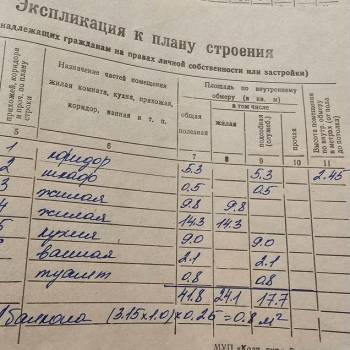 Экспликация к плану строения
надлежащих гражданам на правах личной собственности или застройки)
прихожей, коридора
и проч. по плану
строки
Назначение частей помещения
жилая комната, кухня, прихожая,
коридор, ванная и т. п.
Площадь по внутреннему
обмеру (в кв. м)
в том числе
общая
полезная
жилая
подсобная
(служеб.)
прочая
Высота помещения
по внутр. обмеру
в метрах (от пола
до потолка)
5 6 7 8 9 10 11
1 коридор 5.3 5.3 2.45
2 шкаф 0,5 0,5
3 жилая 9.8 9.8
4 жилая 14.3 14.3
5 кухня 9.0 9.0
ванная 2.1 2.1
туалет 0,8 0,8
41.8 24.1 17.7
балкона (3.15х1.0)х0,25=0.8 м²
МУП